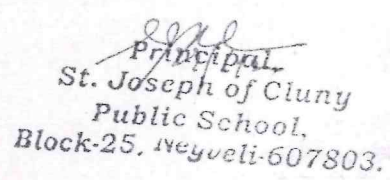 Principal,
St. Joseph of Cluny
Public School,
Block-25, Neyveli-607803.